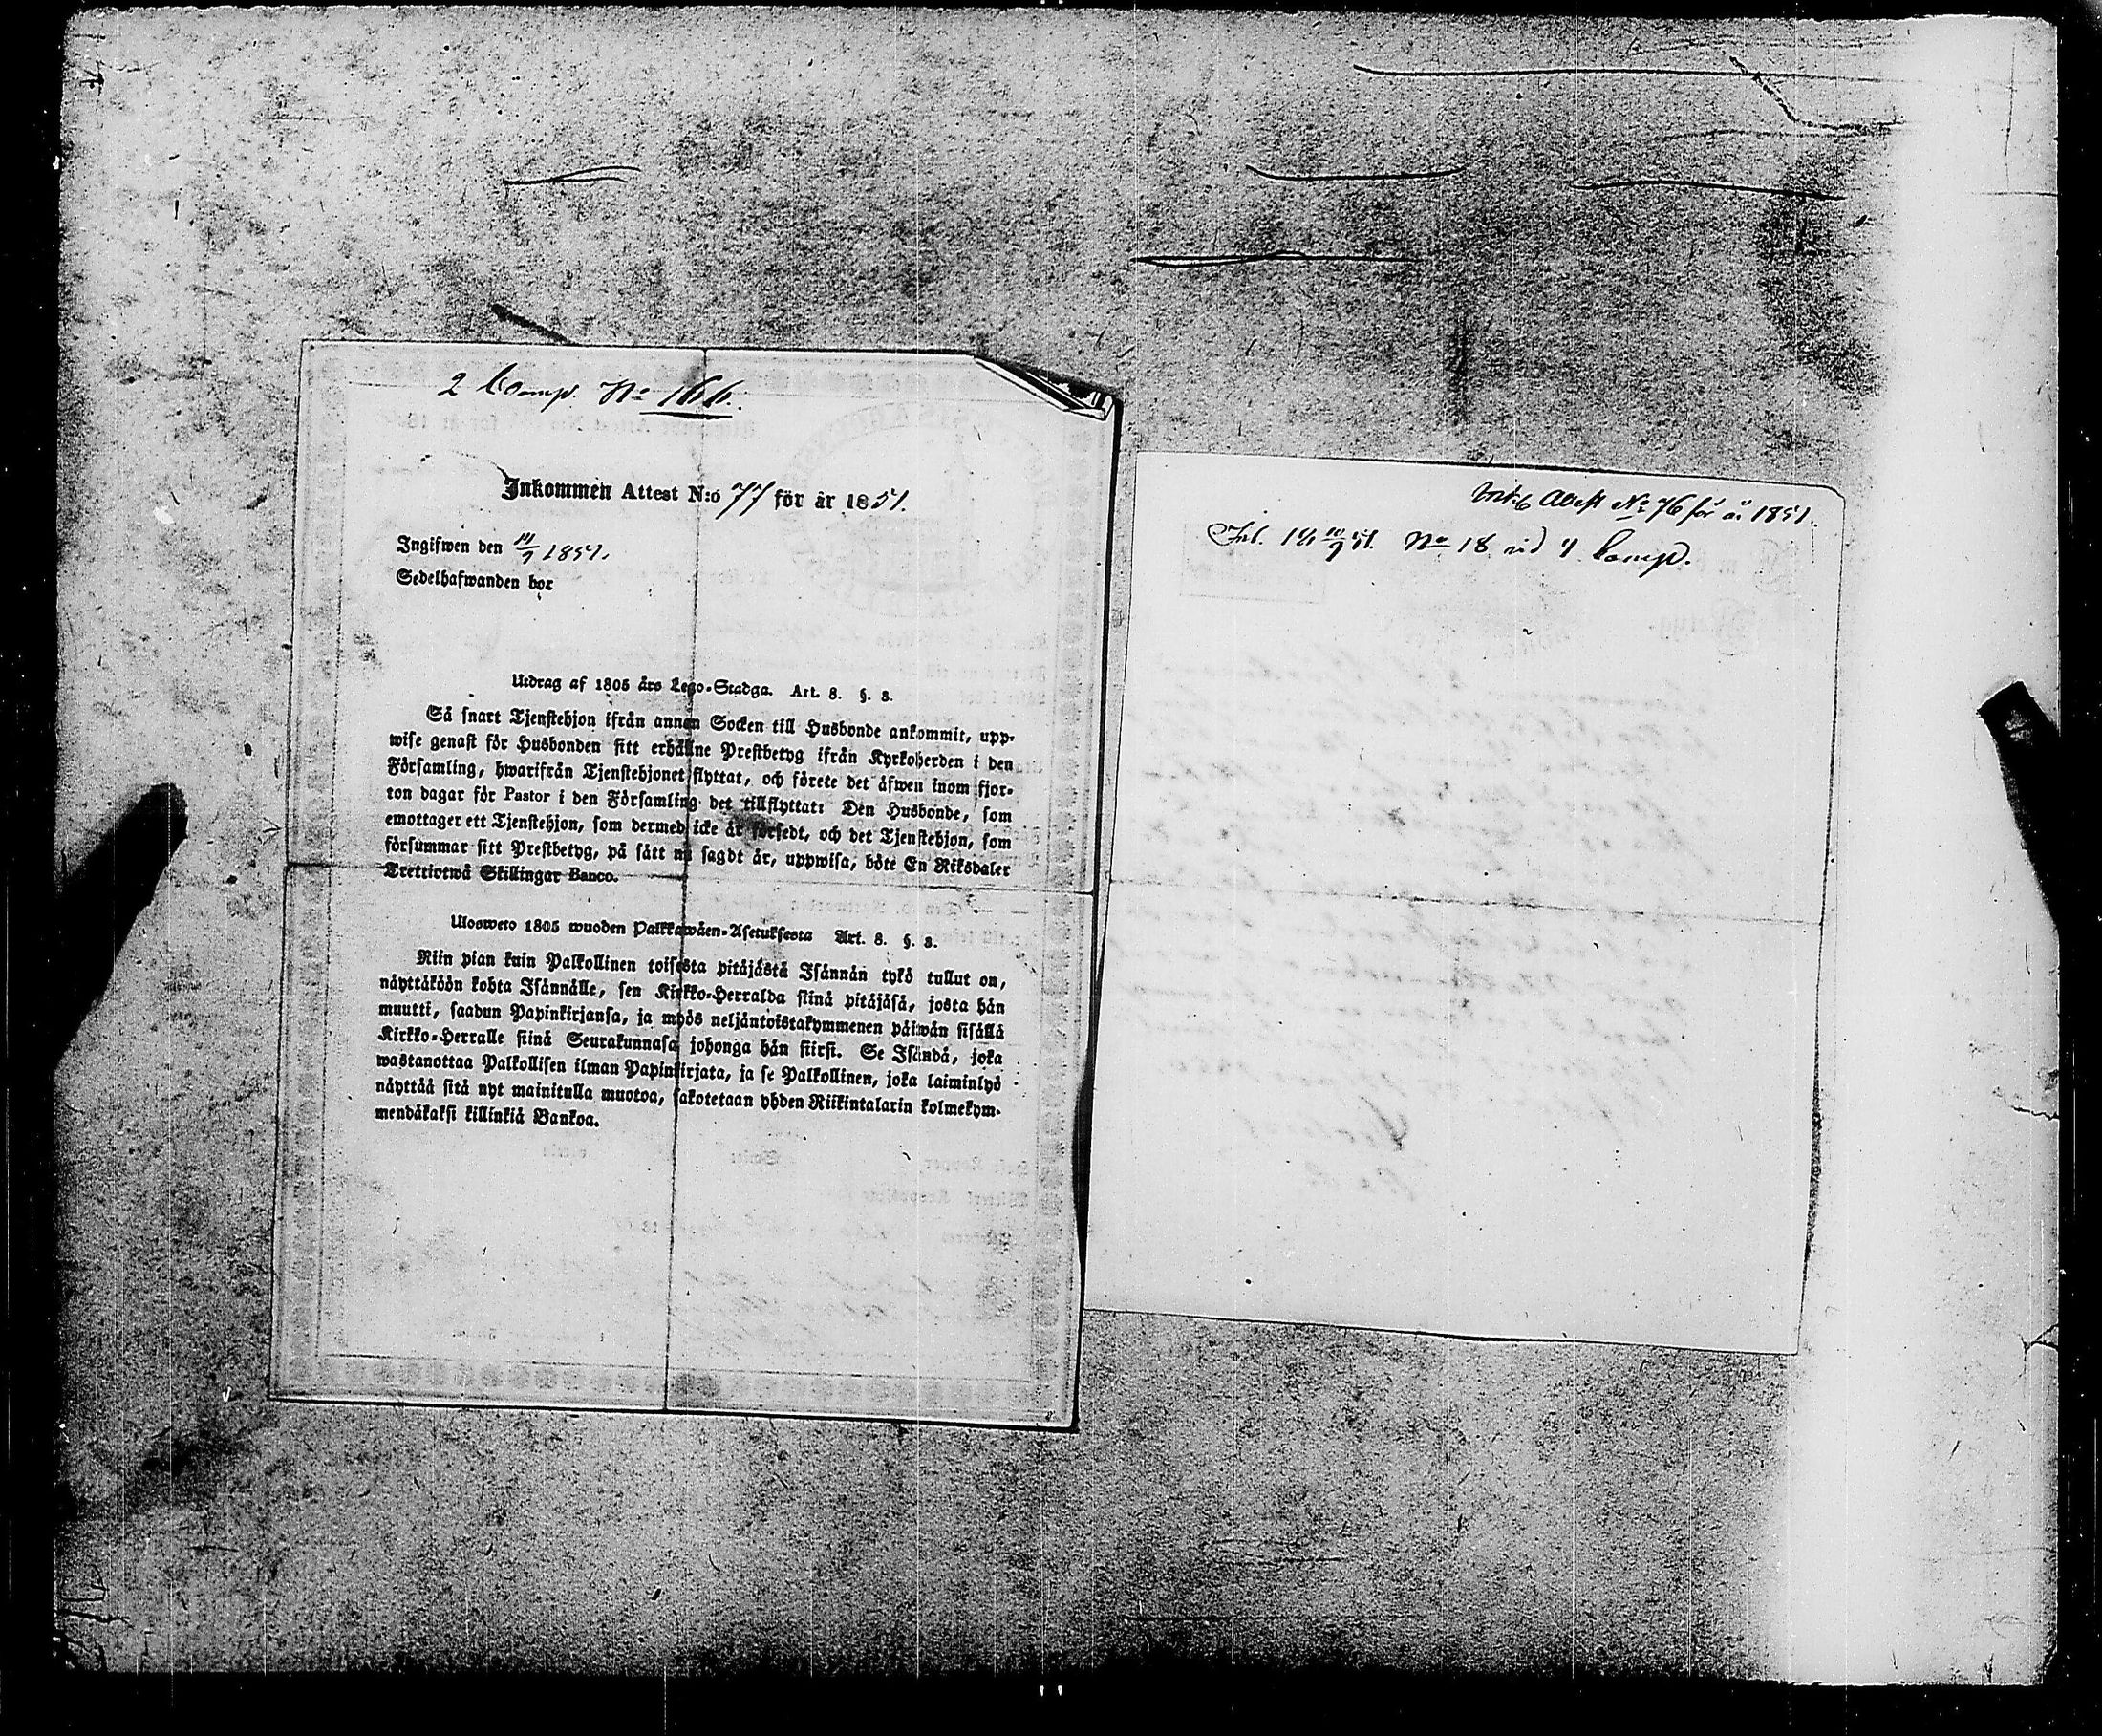 2 Comp. No 166.
Inkommen Attest N:o 77 för år 1851.
Ingifwen den 14/9 1851.
Sedelhafwanden bor
Utdrag af 1805 års Lego-Stadga. Art. 8. §. 8.
Så snart Tjenstehjon ifrån annan Socken till Husbonde ankommit, upp-
wise genast för Husbonden sitt erhållne Prestbetyg ifrån Kyrkoherden i den
Församling, hwarifrån Tjenstehjonet flyttat, och förete det äfwen inom fjor-
ton dagar för Pastor i den Församling det tillflyttat: Den Husbonde, som
emottager ett Tjenstehjon, som dermed icke är försedt, och det Tjenstehjon, som
försummar sitt Prestbetyg, på sätt nu sagdt är, uppwisa, böte En Riksdaler
Trettiotwå Skillingar Banco.
Ulosweto 1805 wuoden Palkkawäen-Asetuksesta Art. 8. §. 8.
Niin pian kuin Palkollinen toisesta pitäjästä Isännän tykö tullut on,
näyttäköön kohta Isännälle, sen Kirkko-Herralda siinä pitäjäsä, josta hän
muutti, saadun Papinkirjansa, ja myös neljäntoistakymmenen päiwän sisällä
Kirkko-Herralle siinä Seurakunnasa johonga hän siirsi. Se Isändä, joka
wastanottaa Palkollisen ilman Papinkirjata, ja se Palkollinen, joka laiminlyö
näyttää sitä nyt mainitulla muotoa, sakotetaan yhden Riikintalarin kolmekym-
mendäkaksi killinkiä Bankoa.
Attest No 76 för år 1851.
No 18 vid Comp.